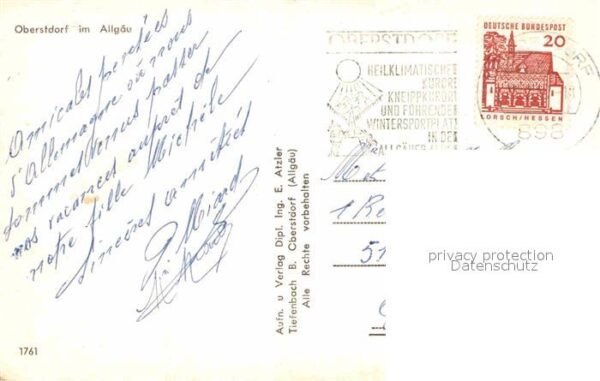 Oberstdorf im Allgäu
Amicales pensées
d'Allemagne où nous
sommes venus passer
nos vacances auprès de
notre fille Michèle
Sincères amitiés
1761
Aufn. u Verlag Dipl. Ing. E. Atzler
Tiefenbach B. Oberstdorf (Allgäu)
Alle Rechte vorbehalten
OBERSTDORF
HEILKLIMATISCHER
KURORT
KNEIPPKURORT
UND FÜHRENDER
WINTERSPORTPLATZ
IN DEN
DEUTSCHE BUNDESPOST
20
LORSCH/HESSEN
898
1 Re
51
privacy protection
Datenschutz